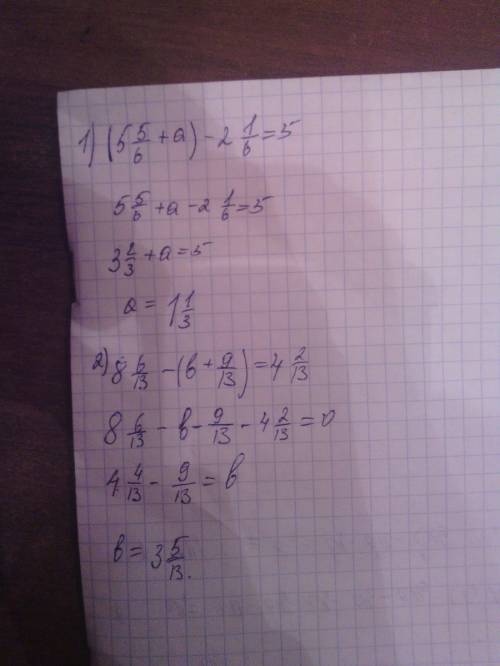 1) (5 5/6 + a) - 2 1/6 = 5
5 5/6 + a - 2 1/6 = 5
3 2/3 + a = 5
a = 1 1/3
2) 8 6/13 - (b + 9/13) = 4 2/13
8 6/13 - b - 9/13 - 4 2/13 = 0
4 4/13 - 9/13 = b
b = 3 5/13.